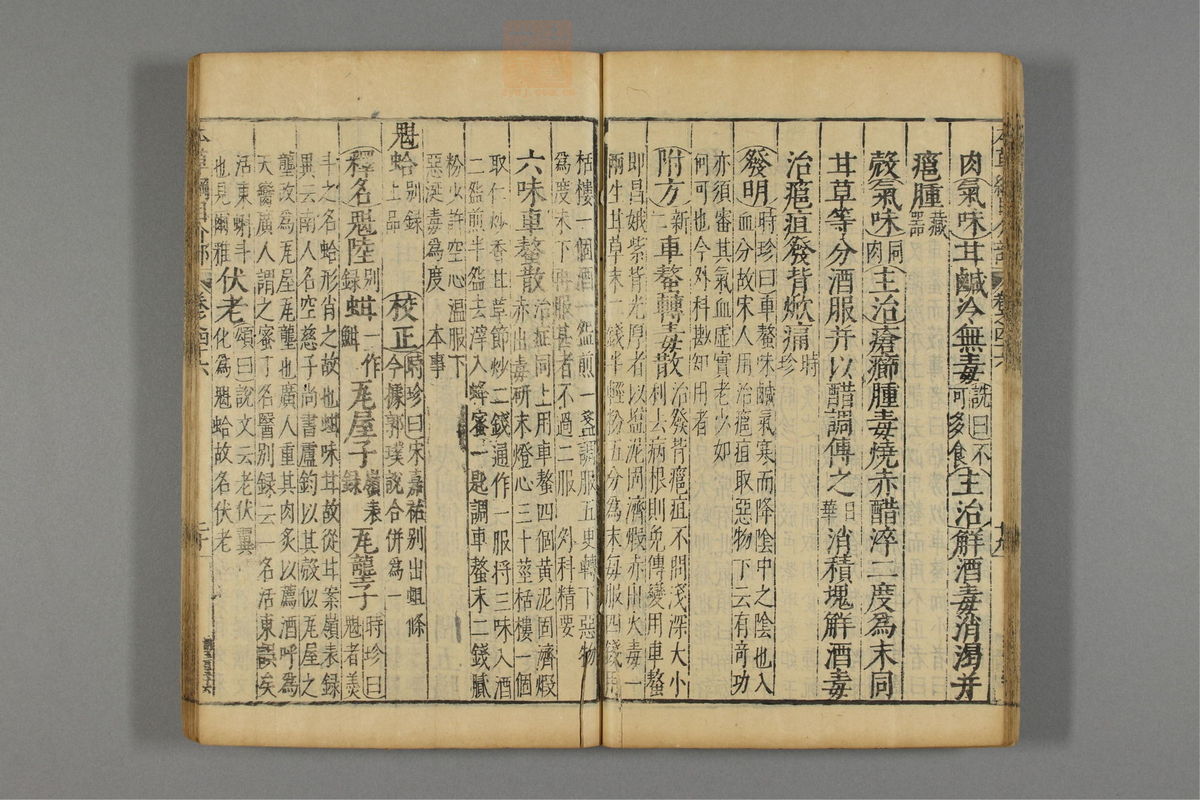 肉氣味甘鹹冷無毒詵曰不可多食主治解酒毒消渴并
瘡腫藏器
殼氣味同肉主治瘡癤腫毒燒赤醋淬二度爲末同
甘草等分酒服并以醋調傅之日華消積塊解酒毒
治癰疽發背焮痛時珍
發明時珍曰車螯味鹹氣寒而降陰中之陰也入
血分故宋人用治癰疽取惡物下云有奇功
亦須審其氣血虛實老少如
何可也今外科尠知用者
附方新二車螯轉毒散治發背癰疽不問淺深大小
利去病根則免傳變用車螯
即昌娥紫背光厚者以鹽泥固濟煅赤出火毒一
兩生甘草末一錢半輕粉五分爲末每服四錢用
栝樓一個酒一盌煎一盞調服五更轉下惡物
爲度未下再服甚者不過二服 外科精要
六味車螯散治症同上用車螯四個黃泥固濟煅
赤出毒研末燈心三十莖栝樓一個
取仁炒香甘草節炒二錢通作一服將三味入酒
二盌煎半盌去滓入蜂蜜一匙調車螯末二錢膩
粉少許空心溫服下
惡涎毒爲度 本事
魁蛤別錄上品校正時珍曰宋嘉祐別出蚶條
今據郭璞說合併爲一
釋名魁陸別錄蚶一作魽瓦屋子嶺表錄瓦壟子時珍曰魁者羹
斗之名蛤形肖之故也蚶味甘故從甘案嶺表錄
異云南人名空慈子尚書盧鈞以其殼似瓦屋之
壟改爲瓦屋瓦壟也廣人重其肉炙以薦酒呼爲
天臠廣人謂之蜜丁名醫別錄云一名活東誤矣
活東蝌斗
也見爾雅伏老頌曰說文云老伏翼
化爲魁蛤故名伏老
本草綱目介部 卷四六